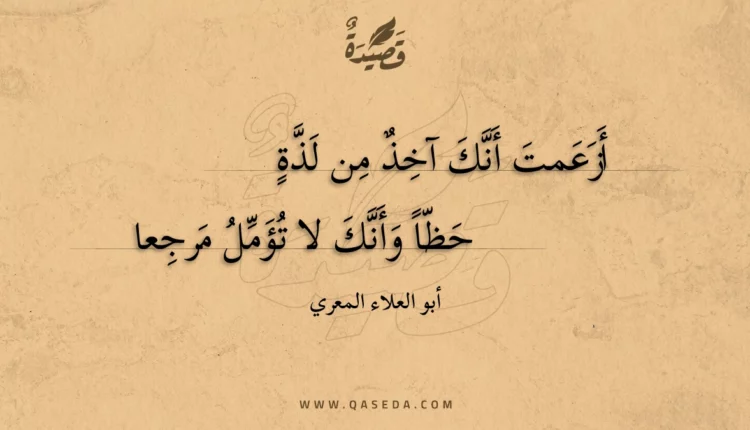 قَصِيدَةٌ
أَزَعَمتَ أَنَّكَ آخِذٌ مِن لَذَّةٍ
حَظّاً وَأَنَّكَ لا تُؤَمِّلُ مَرجِعا
أبو العلاء المعري
WWW.QASEDA.COM